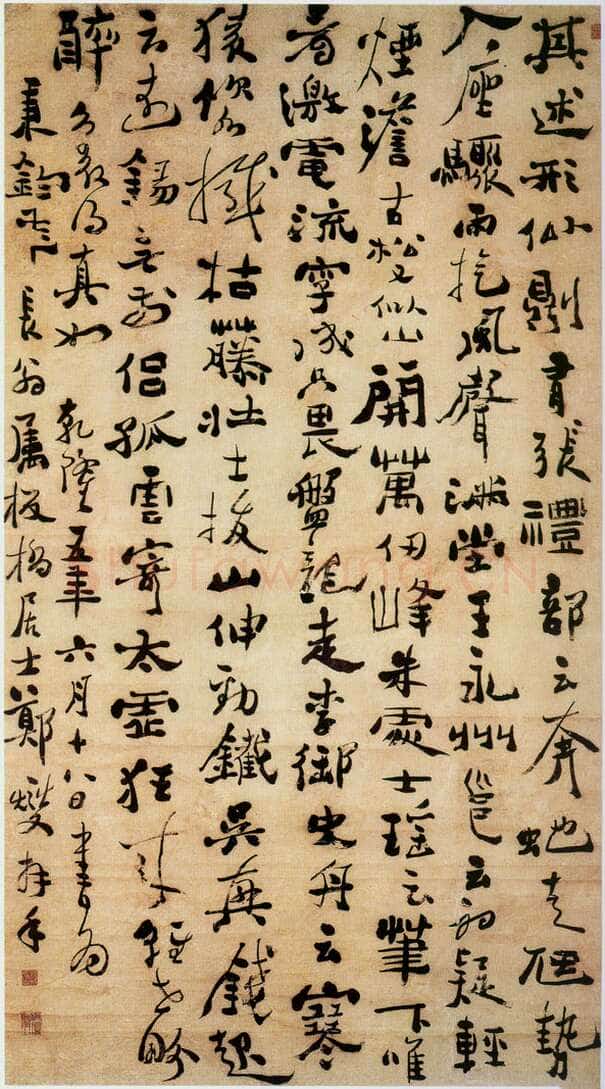 其述形似則有張澧部云奔蛇走虺勢
入座驟雨旋風聲滿堂王永州邕云初疑輕
煙澹古松又似山開萬仞峰朱處士瑤云筆下唯
看激電流字成只畏盤龍走李御史舟云寒
猿飲水撼枯藤壯士拔山伸勁鐵吳興錢起
云遠錫無前侶孤雲寄太虛狂來輕世界
醉得真如乾隆五年六月十八日書為
秉鈞長翁屬板橋居士鄭燮拜手